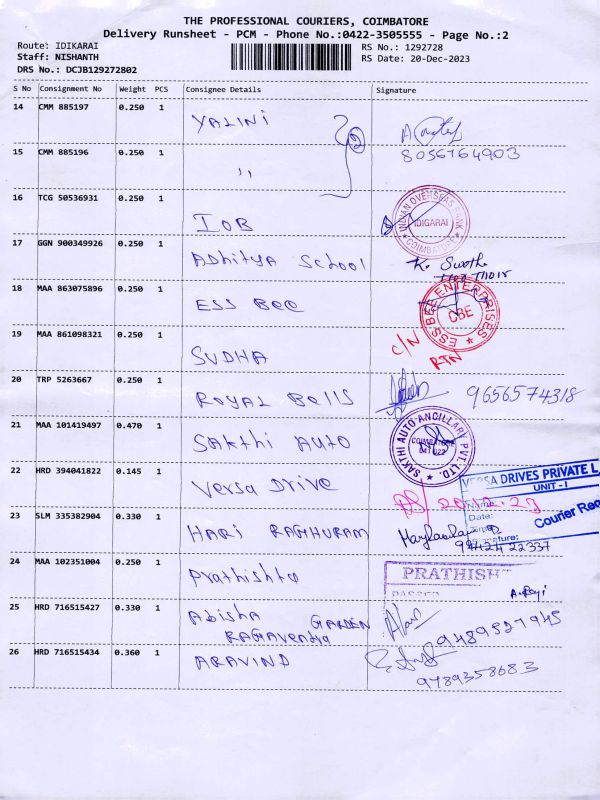 THE PROFESSIONAL COURIERS, COIMBATORE
Delivery Runsheet - PCM - Phone No.:0422-3505555 - Page No.:2
Route: IDIKARAI
RS No.: 1292728
Staff: NISHANTH
RS Date: 20-Dec-2023
DRS No.: DCJB129272802
S No Consignment No Weight PCS Consignee Details Signature
14 CMM 885197 0.250 1 YALINI
15 CMM 885196 0.250 1 ,, 8056764903
16 TCG 50536931 0.250 1 IOB INDIAN OVERSEAS BANK IDIGARAI COIMBATORE
17 GGN 900349926 0.250 1 Adhitya School K. Swathi
18 MAA 863075896 0.250 1 ESS Bee ESS BEE ENTERPRISES CBE
19 MAA 861098321 0.250 1 SUDHA C/N RTN
20 TRP 5263667 0.250 1 ROYAL Bells 9656574318
21 MAA 101419497 0.470 1 SAKthi AUTO SAKTHI AUTO ANCILLARY PVT. LTD. COIMBATORE 641 022
22 HRD 394041822 0.145 1 Versa Drive VERSA DRIVES PRIVATE L
UNIT - I
Name:
Date:
Courier Rec
Signature:
23 SLM 335382904 0.330 1 HARI RAGHURAM 9442422337
24 MAA 102351004 0.250 1 Prathishta PRATHISH
PASSED
25 HRD 716515427 0.330 1 Abisha GARDEN
RAGAVendra 9489527945
26 HRD 716515434 0.360 1 ARAVIND
9789358683